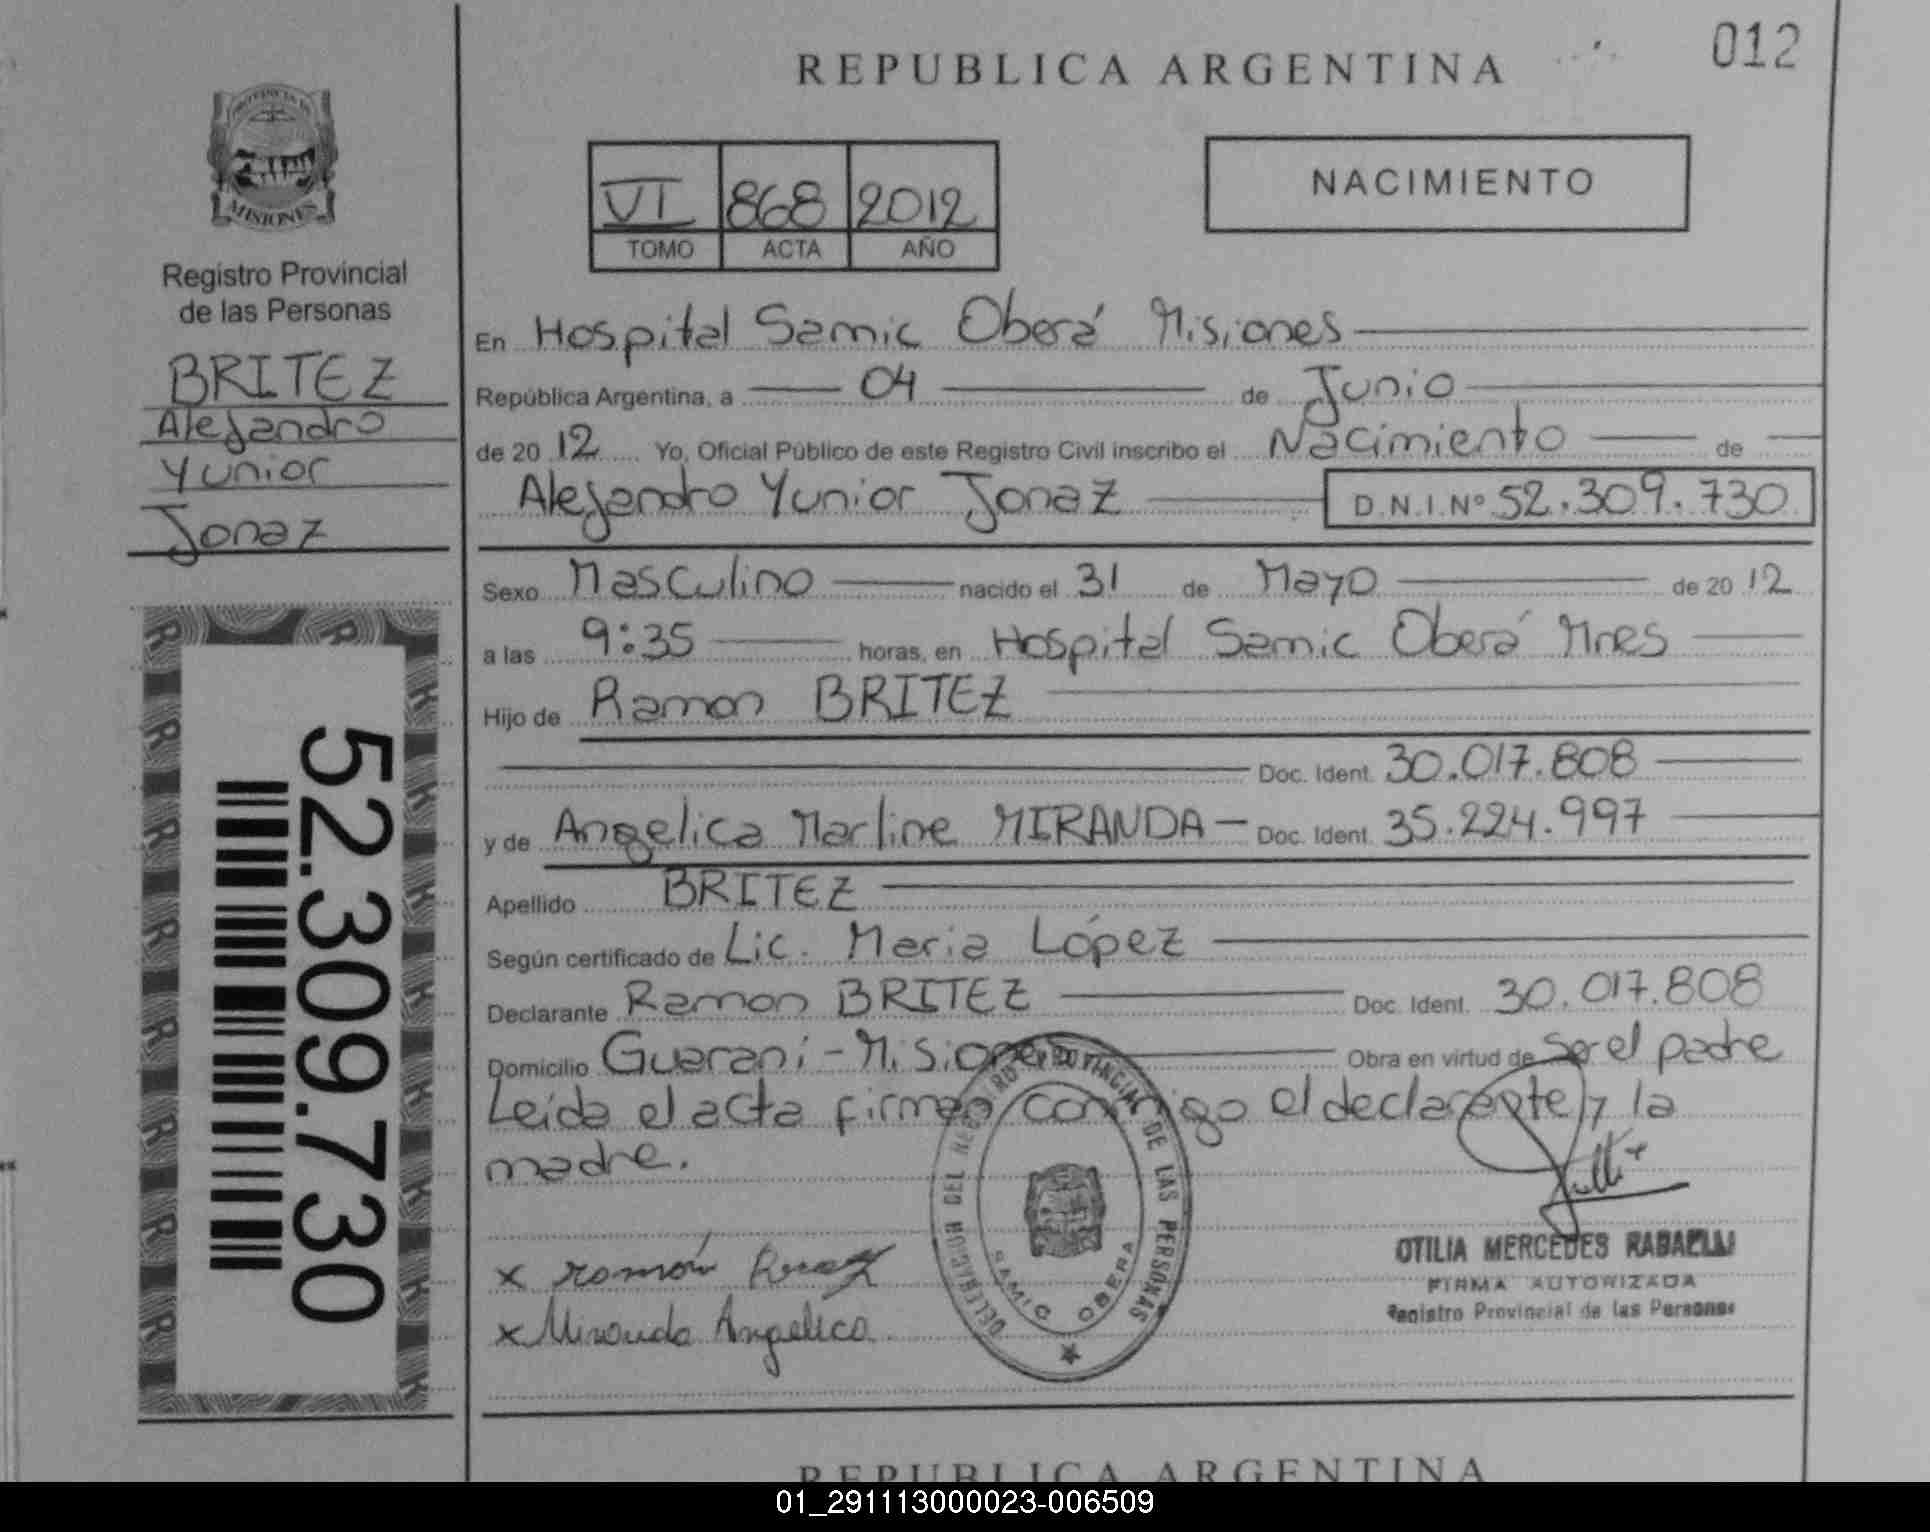 REPUBLICA ARGENTINA
012
PROVINCIA DE
MISIONES
Registro Provincial
de las Personas
BRITEZ
Alejandro
Yunior
Jonaz
52.309.730
VI 868 2012
TOMO ACTA AÑO
NACIMIENTO
En Hospital Samic Oberá Misiones
República Argentina, a 04 de Junio
de 2012 Yo, Oficial Público de este Registro Civil inscribo el Nacimiento de
Alejandro Yunior Jonaz D.N.I.Nº 52.309.730
Sexo Masculino nacido el 31 de Mayo de 2012
a las 9:35 horas, en Hospital Samic Oberá Mnes
Hijo de Ramon BRITEZ
Doc. Ident. 30.017.808
y de Angelica Marline MIRANDA Doc. Ident. 35.224.997
Apellido BRITEZ
Según certificado de Lic. Maria López
Declarante Ramon BRITEZ Doc. Ident. 30.017.808
Domicilio Guaraní - Misiones Obra en virtud de Ser el padre
Leída el acta firman conmigo el declarante y la
madre.
DELEGACION DEL REGISTRO PROVINCIAL DE LAS PERSONAS
SAMIC OBERA
x Ramón
x Miranda Angelica
OTILIA MERCEDES
FIRMA AUTORIZADA
Registro Provincial de las Personas
REPUBLICA ARGENTINA
01_291113000023-006509